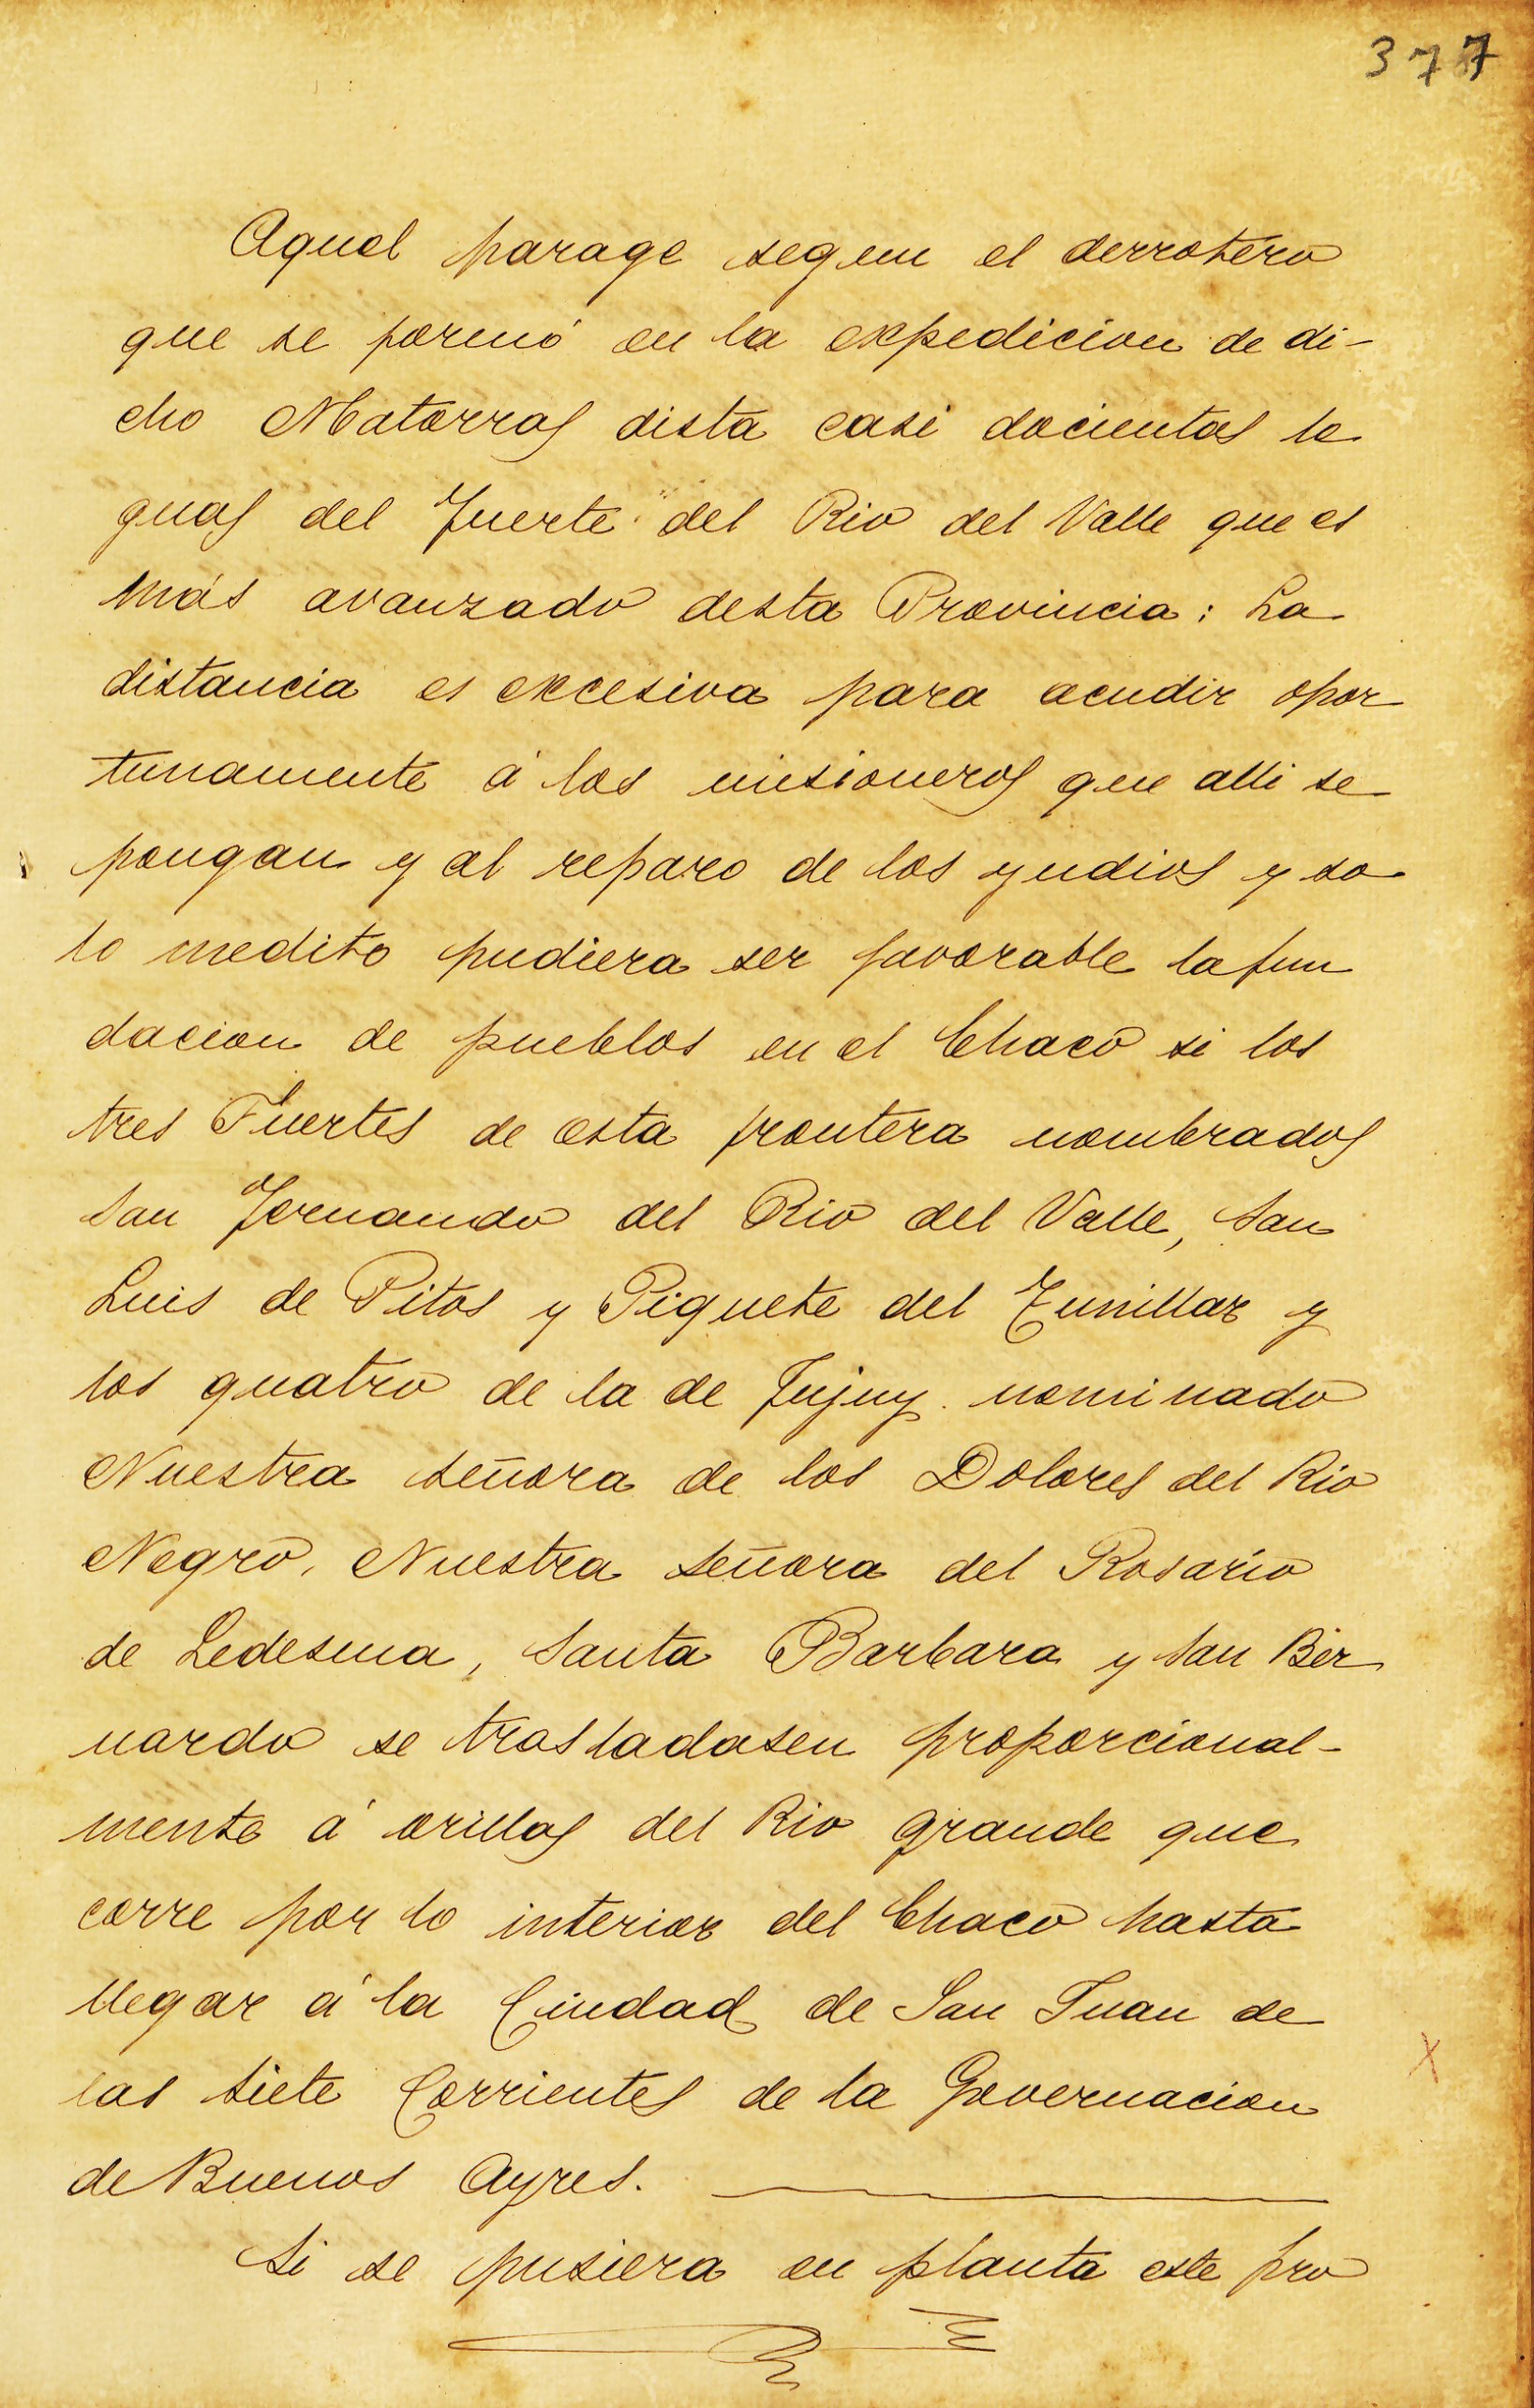 377
Aquel parage segun el derrotero
que se formó en la expedicion de di-
cho Matorras dista casi docientas le
guas del Fuerte del Rio del Valle que es
más avanzado desta Provincia: La
distancia es excesiva para acudir opor
tunamente á los misioneros que alli se
pongan y al reparo de los yndios y so
lo medito pudiera ser favorable la fun
dacion de pueblos en el Chaco si los
tres Fuertes de esta frontera nombrados
San Fernando del Rio del Valle, San
Luis de Pitos y Piquete del Tunillar y
los quatro de la de Jujuy. nominado
Nuestra señora de los Dolores del Rio
Negro, Nuestra señora del Rosario
de Ledesma, Santa Barbara y San Ber
nardo se trasladasen proporcional-
mente á orillas del Rio grande que
corre por lo interior del Chaco hasta
llegar á la Ciudad de San Juan de
las siete Corrientes de la Governacion
de Buenos Ayres.
Si se pusiera en planta este pro